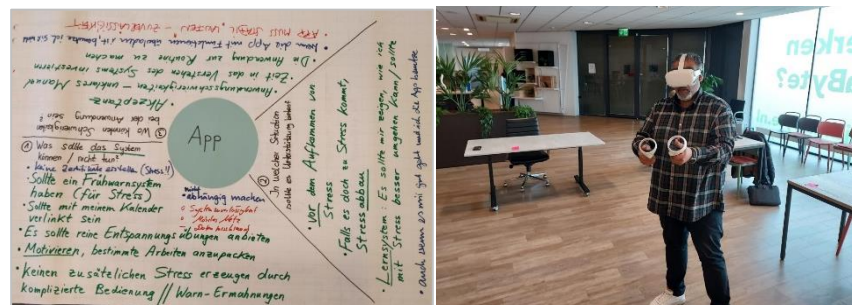 App
① Was sollte das System
können / nicht tun?
• Sollte ein Frühwarnsystem
haben (für Stress)
• Sollte mit meinem Kalender
verlinkt sein
• Es sollte reine Entspannungsübungen anbieten
• Motivieren, bestimmte Arbeiten anzupacken
• Keinen zusätzlichen Stress erzeugen durch
komplizierte Bedienung // Warn-Ermahnungen
abhängig machen
② In welcher Situation
sollte es Unterstützung
• Vor dem Aufkommen von
Stress
• Falls es doch zu Stress kommt,
Stressabbau
• Lernsystem: Es sollte mir zeigen, wie ich
mit Stress besser umgehen kann / sollte
• auch wenn es mir gut geht und ich die App benutze
③ Wo könnten Schwierigkeiten
bei der Anwendung sein?
• Akzeptanz
• Anwendungsschwierigkeiten - unklares Manual
• Zeit in das Verstehen des Systems investieren
Anwendung zur Routine zu machen
• Wenn die App mit Funktionen überladen ist, benutze ich sie
• App muss stabil laufen, Zuverlässigkeit
erken
aByte?